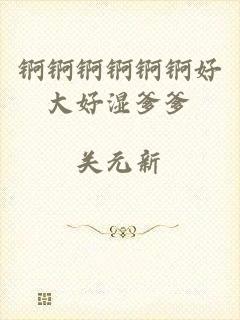 锕锕锕锕锕锕好
大好湿爹爹
关元新